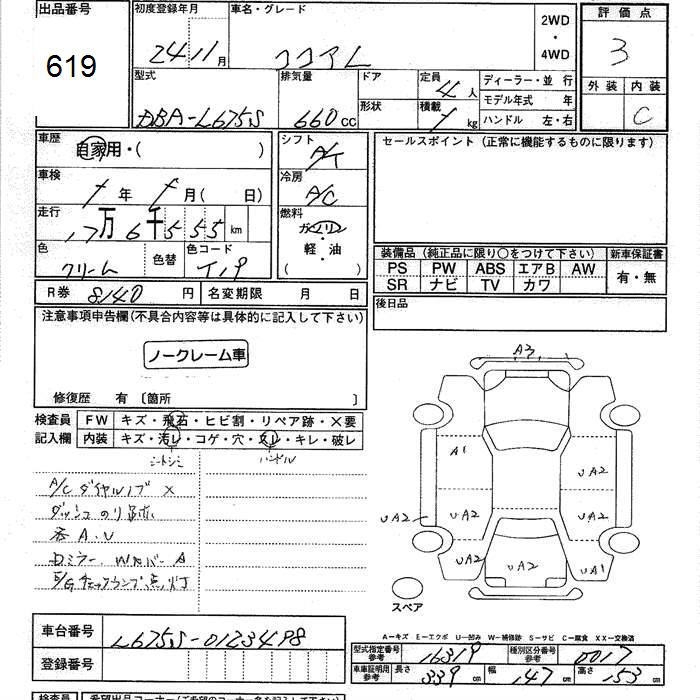 出品番号
619
初度登録年月
24 11月
車名・グレード
ココアL
2WD
・
4WD
評価点
3
外装 内装
C
型式
DBA-L675S
排気量
660cc
ドア
形状
定員
4人
積載
kg
ディーラー・並行
モデル年式 年
ハンドル 左・右
車歴
自家用・( )
シフト
A/T
車検
年 月( 日)
冷房
A/C
走行
17万6千555km
燃料
ガソリン
・
軽・油
( )
色
クリーム
色替
色コード
セールスポイント(正常に機能するものに限ります)
装備品(純正品に限り○をつけて下さい) 新車保証書
PS PW ABS エアB AW
SR ナビ TV カワ
有・無
R券 8140円 名変期限 月 日
後日品
注意事項申告欄(不具合内容等は具体的に記入して下さい)
ノークレーム車
修復歴 有 〔箇所 〕
検査員
記入欄
FW キズ・飛石・ヒビ割・リペア跡・×要
内装 キズ・汚レ・コゲ・穴・スレ・キレ・破レ
シートシミ ハンドル
A/C ダイヤルノブ ×
ダッシュ のり跡
各A.U
ロミラー. Wカバー A
E/Gチェックランプ点灯
A3
A1
UA2
UA2
UA2
UA2
UA2
UA2
UA1
スペア
A-キズ E-エクボ U-凹み W-補修跡 S-サビ C-腐食 XX-交換済
車台番号
L675S-0123498
登録番号
型式指定番号
参考
16319
種別区分番号
参考
0017
車庫証明用
参考
長さ 339cm 幅 147cm 高さ 153cm
検査員
希望出品コーナー(ご希望のコーナー名を記入下さい)